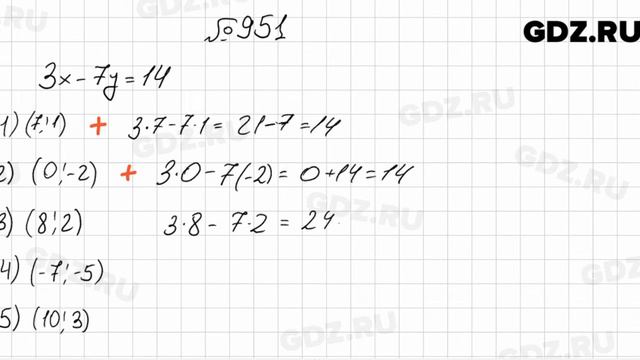 №951
GDZ.RU
3x-7y=14
1) (7;1) + 3·7-7·1= 21-7=14
2) (0;-2) + 3·0-7(-2)=0+14=14
3) (8;2) 3·8-7·2=24
4) (-7;-5)
5) (10;3)
GDZ.RU
GDZ.RU
GDZ.RU
GDZ.RU
GDZ.RU
GDZ.RU
GDZ.RU
GDZ.RU